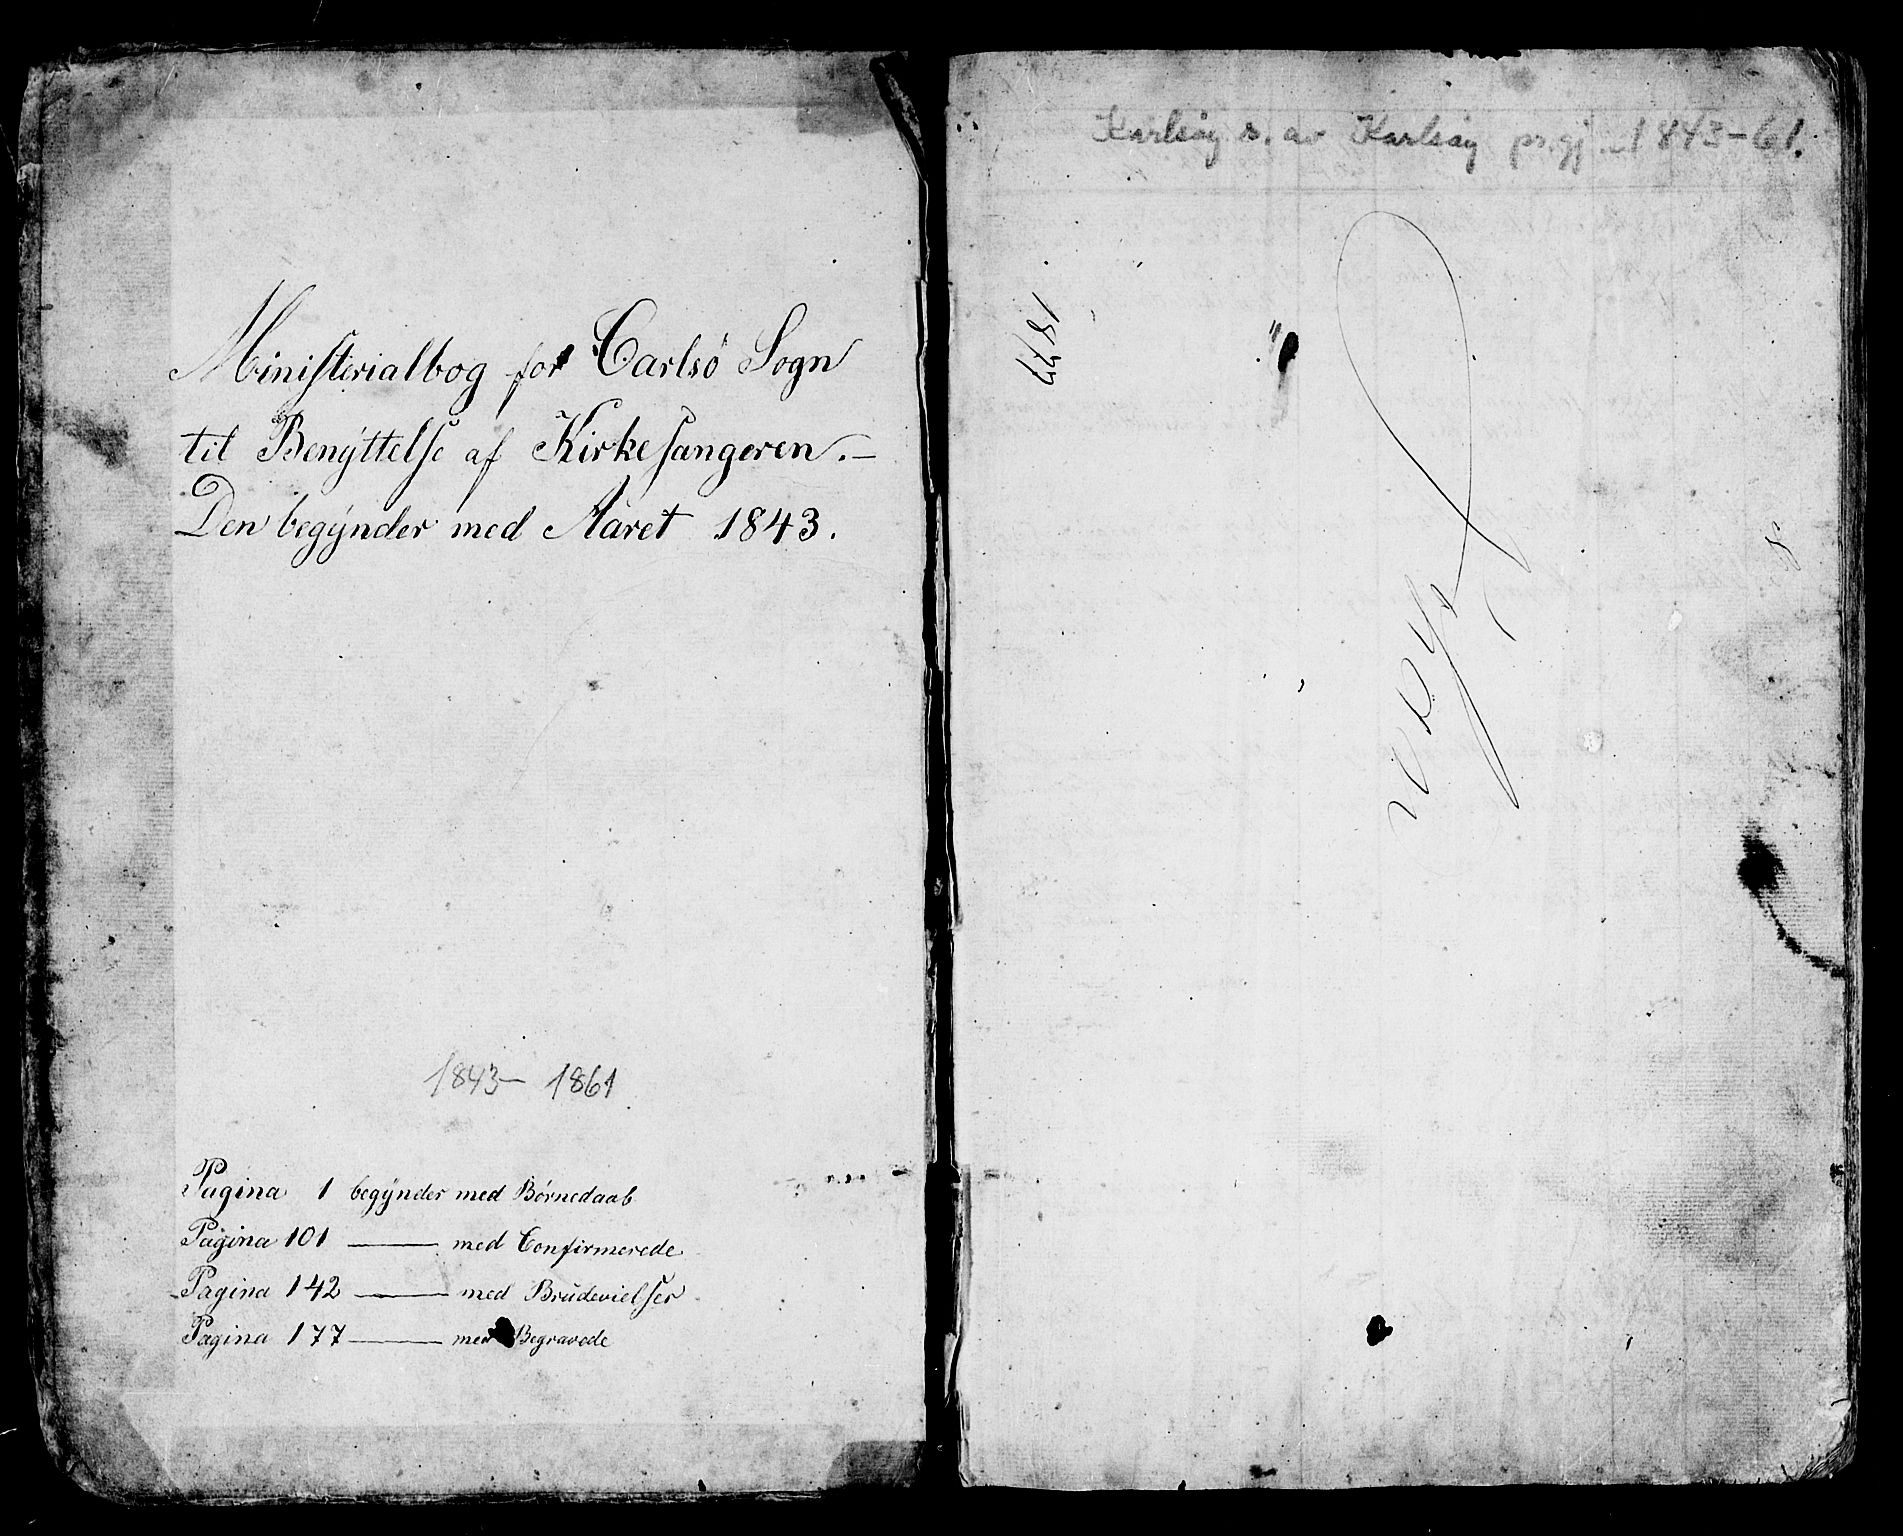 Ministerialbog for Carlsö Sogn
til Benÿttelse af Kirkesangeren.—
Den begÿnder med Aaret 1843.
1843– 1861
Pagina 1 begÿnder med Börnedaab
Pagina 101 —— med Confirmerede
Pagina 142 —— med Brudevielser
Pagina 177 —— med Begravede
Karlsöy s. av Karlsöy prgj. 1843–61.
1877